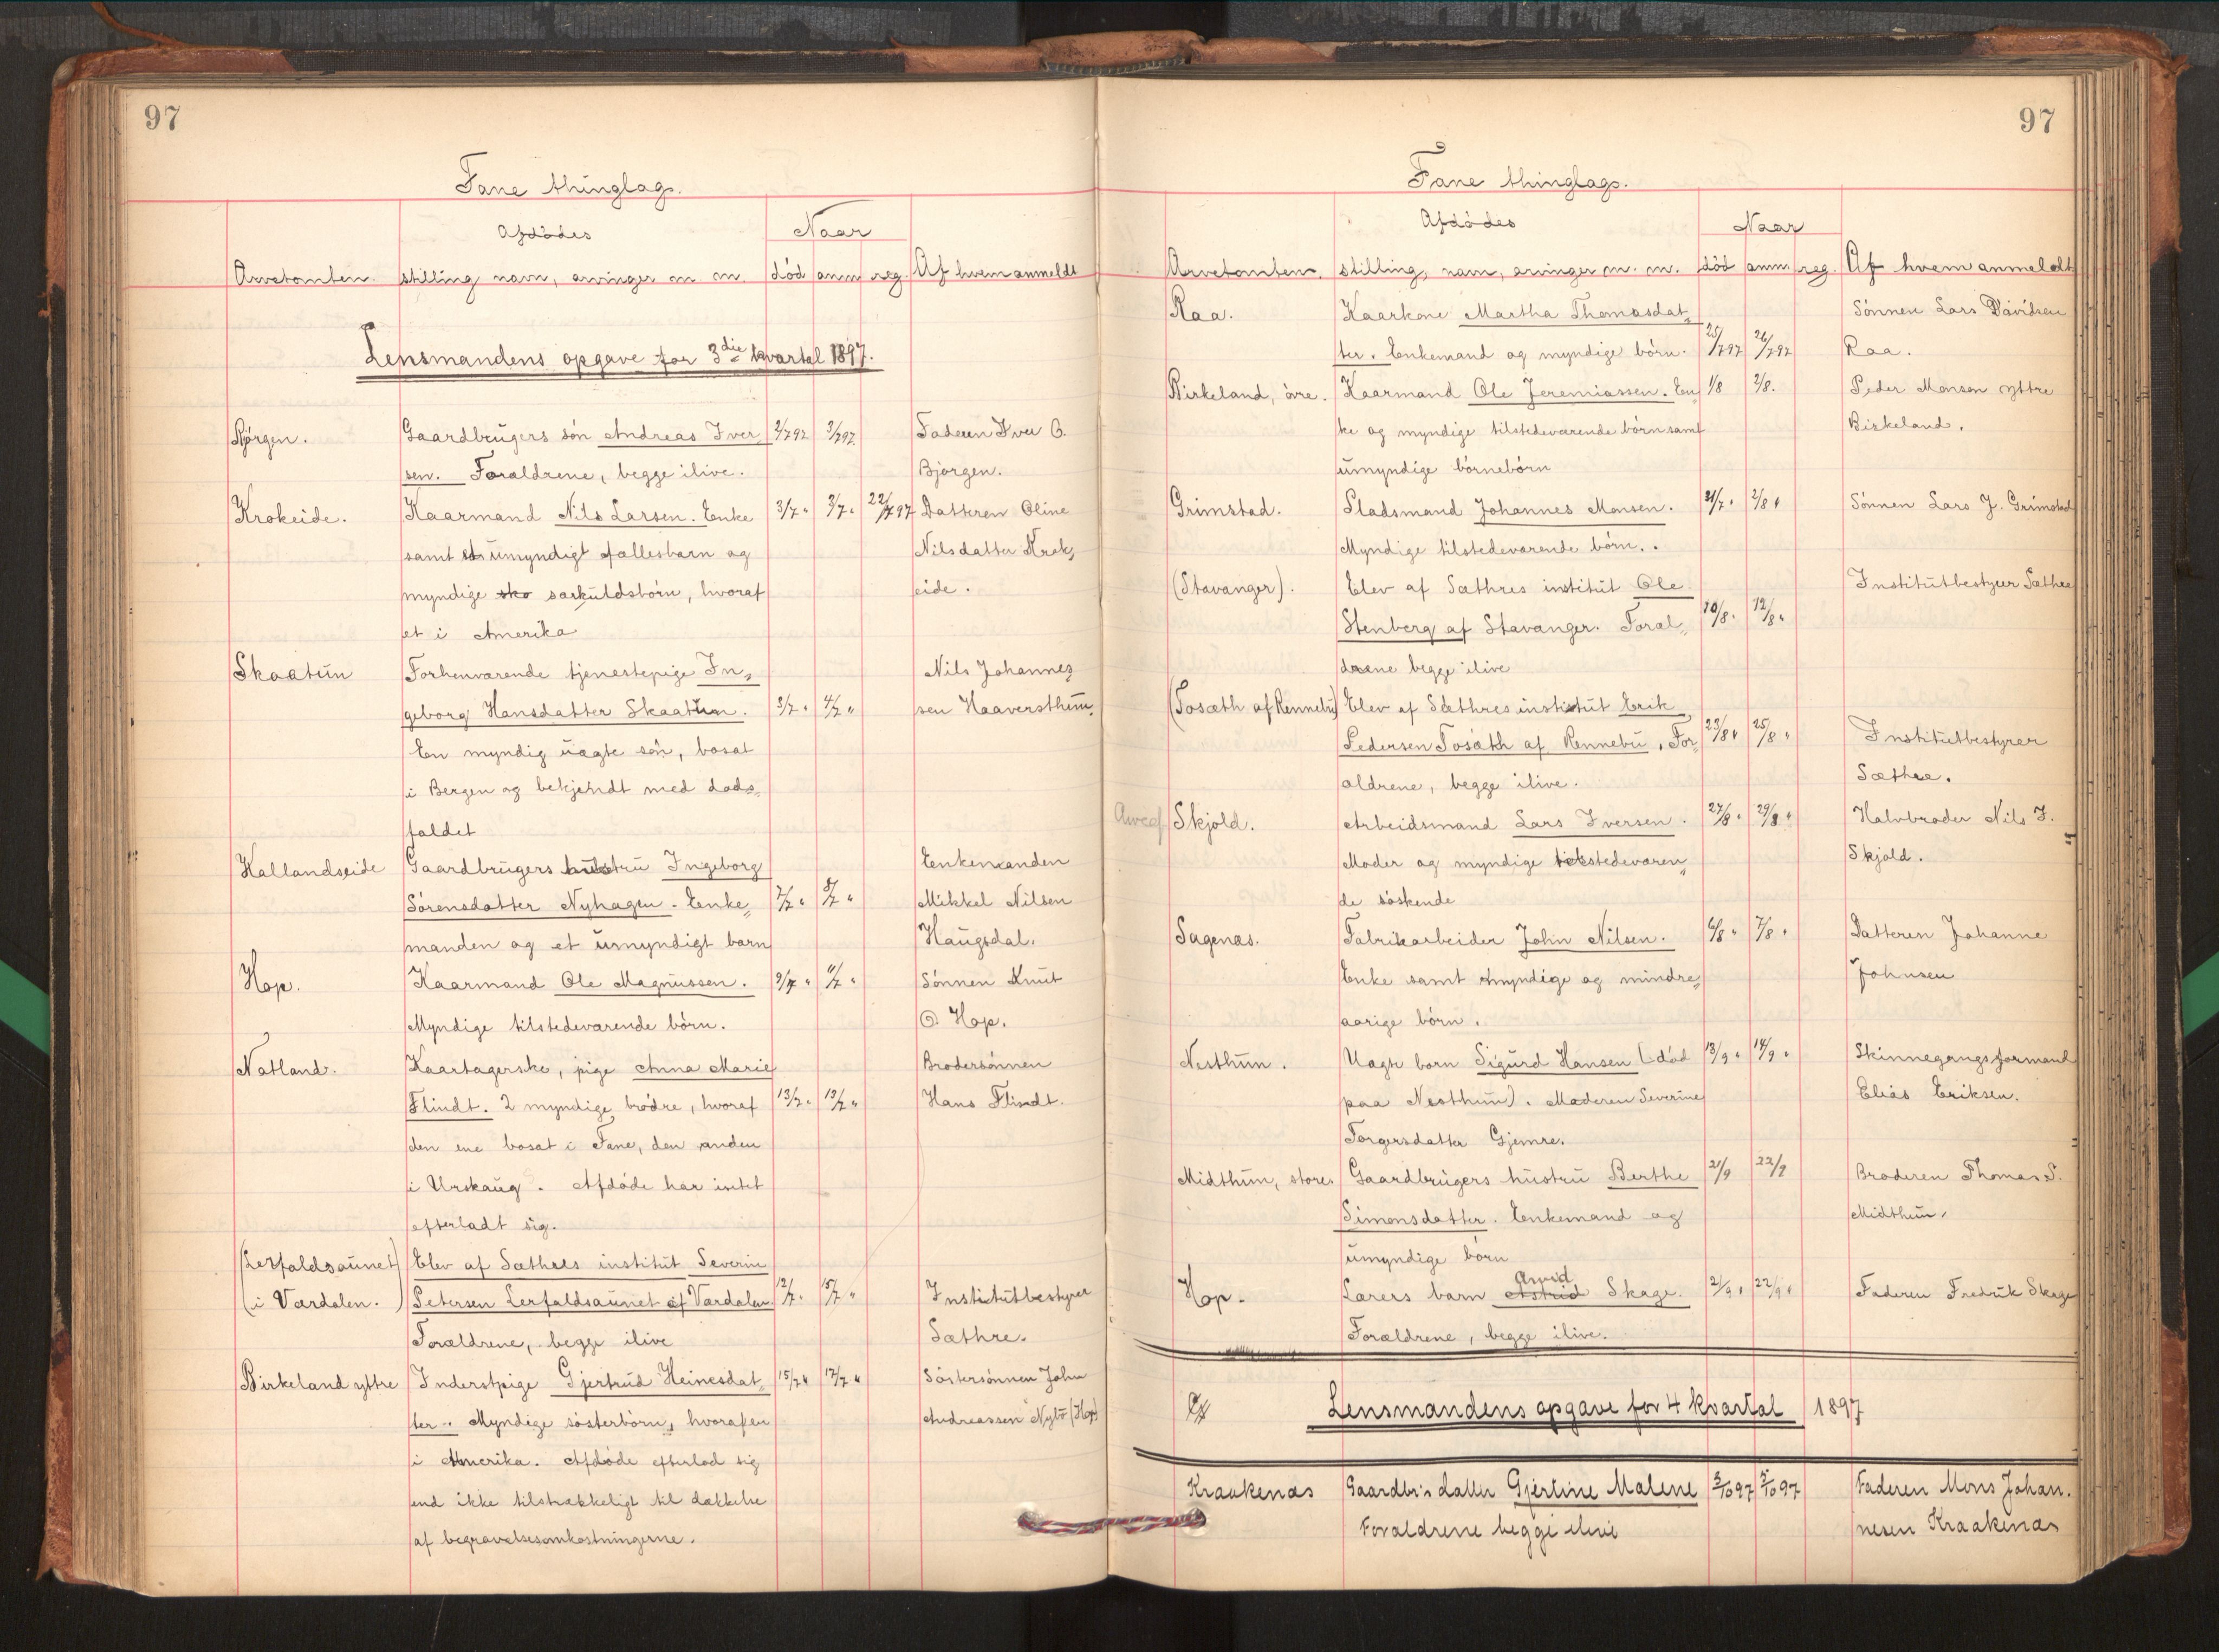 97
Fane thinglag.
Afdødes
Naar
Arvetomten. stilling navn, arvinger m m. død anm reg. Af hvem anmeldt
Lensmandens opgave for 3die kvartal 1897.
Bjørgen. Gaardbrugers søn Andreas Iver 2/7 97 3/7 97 Faderen Iver O.
sen. Forældrene, begge ilive. Bjørgen.
Krokeide. Kaarmand Nils Larsen. Enke 3/7 " 3/7 " 22/7 97 Datteren Oline
samt et umyndigt fællesbarn og Nilsdatter Krok,
myndige sko særkuldsbørn, hvoraf eide.
et i Amerika
Skaatun Forhenværende tjenestepige In, Nils Johannes,
geborg Hansdatter Skaatun. 3/7 " 4/7 " sen Haaversthun,
En myndig uægte søn, bosat
i Bergen og bekjendt med døds,
faldet
Hallandseide Gaardbrugers hustru Ingeborg Enkemanden
Sørensdatter Nyhagen. Enke, 7/7 " 8/7 " Mikkel Nilsen
manden og et umyndigt barn Haugsdal.
Hop. Kaarmand Ole Magnussen. 9/7 " 11/7 " Sønnen Knut
Myndige tilstedeværende børn. O Hop.
Natland. Kaartagerske, pige Anna Marie Brodersønnen
Flindt. 2 myndige brødre, hvoraf 13/7 " 13/7 " Hans Flindt.
den ene bosat i Fane, den anden
i Urskaug. Afdøde har intet
efterladt sig.
(Lerfaldsaunet) Elev af Sæthres institut Severin
(i Værdalen.) Petersen Lerfaldsaunet af Værdalen. 12/7 " 15/7 " Institutbestyrer
Forældrene, begge ilive Sæthre.
Birkeland yttre Inderstpige Gjertrud Heinesdat, 15/7 " 17/7 " Søstersønnen John
ter. Myndige søsterbørn, hvoraf en Andreassen Nyb (Hop)
i Amerika. Afdøde efterlod sig
end ikke tilstrækkeligt til dækkelse
af begravelsesomkostningerne.
97
Fane thinglag.
Afdødes
Naar
Arvetomten. stilling, navn, arvinger m. m. død anm. reg. Af hvem anmeldt
Raa. Kaarkone Martha Thomasdat, Sønnen Lars Davidsen
ter. Enkemand og myndige børn. 25/7 97 26/7 97 Raa.
Birkeland, øvre. Kaarmand Ole Jeremiassen. En, 1/8 2/8. Peder Monsen yttre
ke og myndige tilstedeværende børn samt Birkeland.
umyndige børnebørn
Grimstad. Pladsmand Johannes Monsen. 31/7 " 2/8 " Sønnen Lars J. Grimstad
Myndige tilstedeværende børn.
(Stavanger). Elev af Sæthres institut Ole Institutbestyrer Sæthre
Stenberg af Stavanger. Foræl, 10/8 " 12/8 "
drene begge ilive
(Tosæth af Rennebu) Elev af Sæthres institut Erik
Pedersen Tosæth af Rennebu. For, 23/8 " 25/8 " Institutbestyrer
ældrene, begge ilive. Sæthre.
Skjold. Arbeidsmand Lars Iversen. 27/8 " 29/8 " Halvbroder Nils I.
Moder og myndige tilstedeværen, Skjold.
de søskende
Sagenæs. Fabrikarbeider John Nilsen. 6/8 " 7/8 " Datteren Johanne
Enke samt myndige og mindre, Johnsen
aarige børn.
Nesthun. Uægte barn Sigurd Hansen (død 13/9 " 14/9 " Skinnegangsformand
paa Nesthun). Moderen Severine Elias Eriksen.
Torgersdatter Gjemre.
Midthun, store. Gaardbrugers hustru Berthe 21/9 22/9 Broderen Thomas S.
Simonsdatter. Enkemand og Midthun.
umyndige børn
Arvid
Hop. Lærers barn Astrid Skage. 21/9 " 22/9 " Faderen Fredrik Skage
Forældrene, begge ilive.
Lensmandens opgave for 4 kvartal 1897
Kraakenæs Gaardbr's datter Gjertine Malene 2/10 97 5/10 97 Faderen Mons Johan.
Forældrene begge ilive nesen Kraakenæs